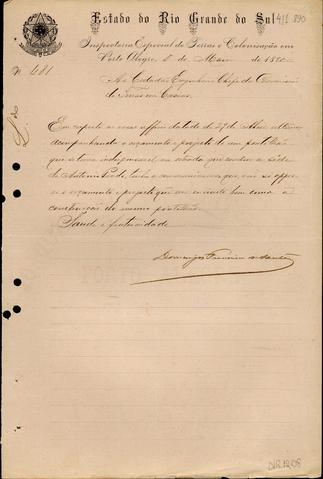 Estado do Rio Grande do Sul
411 890
Inspectoria Especial de Terras e Colonisação em
Porto Alegre, 5 de Maio de 1890
Nº 481
Ao Cidadão Engenheiro Chefe da Commissão
de Terras em Caxias
Em resposta ao vosso officio datado de 29 de Abril ultimo,
acompanhando o orçamento e projecto de um pontilhão
que se torna indispensavel na estrada que conduz a séde
de Antonio Prado, tenho a communicar que
o orçamento e projecto que bem como a
construcção do mesmo pontilhão
Saude e fraternidade
Domingos